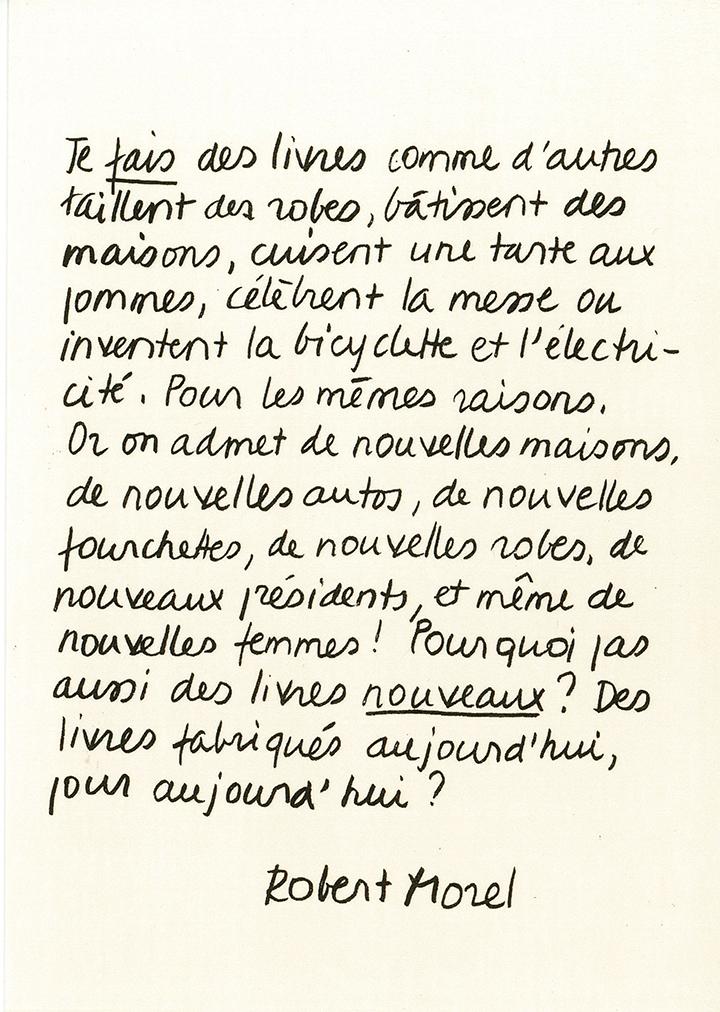 Je fais des livres comme d'autres
taillent des robes, bâtissent des
maisons, cuisent une tarte aux
pommes, célèbrent la messe ou
inventent la bicyclette et l'électri-
cité. Pour les mêmes raisons.
Or on admet de nouvelles maisons,
de nouvelles autos, de nouvelles
fourchettes, de nouvelles robes, de
nouveaux présidents, et même de
nouvelles femmes ! Pourquoi pas
aussi des livres nouveaux ? Des
livres fabriqués aujourd'hui,
pour aujourd'hui ?
Robert Morel